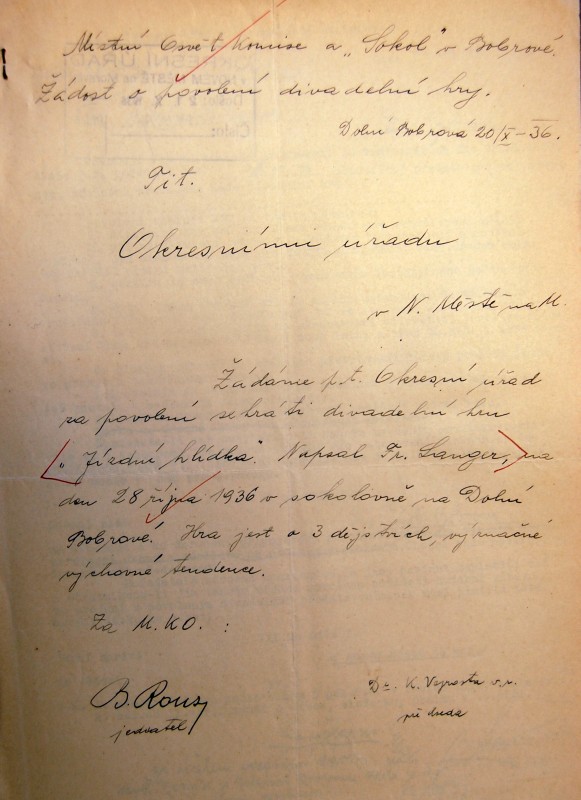 Místní Osvět. Komise a „Sokol" v Bobrové.
Žádost o povolení divadelní hry.
Dolní Bobrová 20/X – 36.
Tit.
Okresnímu úřadu
v N. Městě na M.
Žádáme p.t. Okresní úřad
za povolení sehráti divadelní hru
„Jízdní hlídka". Napsal Fr. Langer, na
den 28 října 1936 v sokolovně na Dolní
Bobrové. Hra jest o 3 dějstvích, význačné
výchovné tendence.
Za M.KO. :
B. Rous
jednatel
Dr. K. Veprosta v.r.
předseda